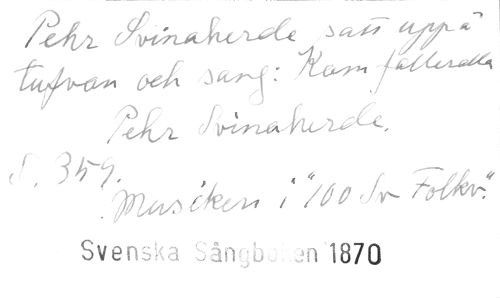 Pehr Svinaherde satt uppå
tufvan och sang: Kom falleralla
Pehr Svinaherde.
S. 359.
Musiken i "100 Sv Folkv".
Svenska Sångboken 1870